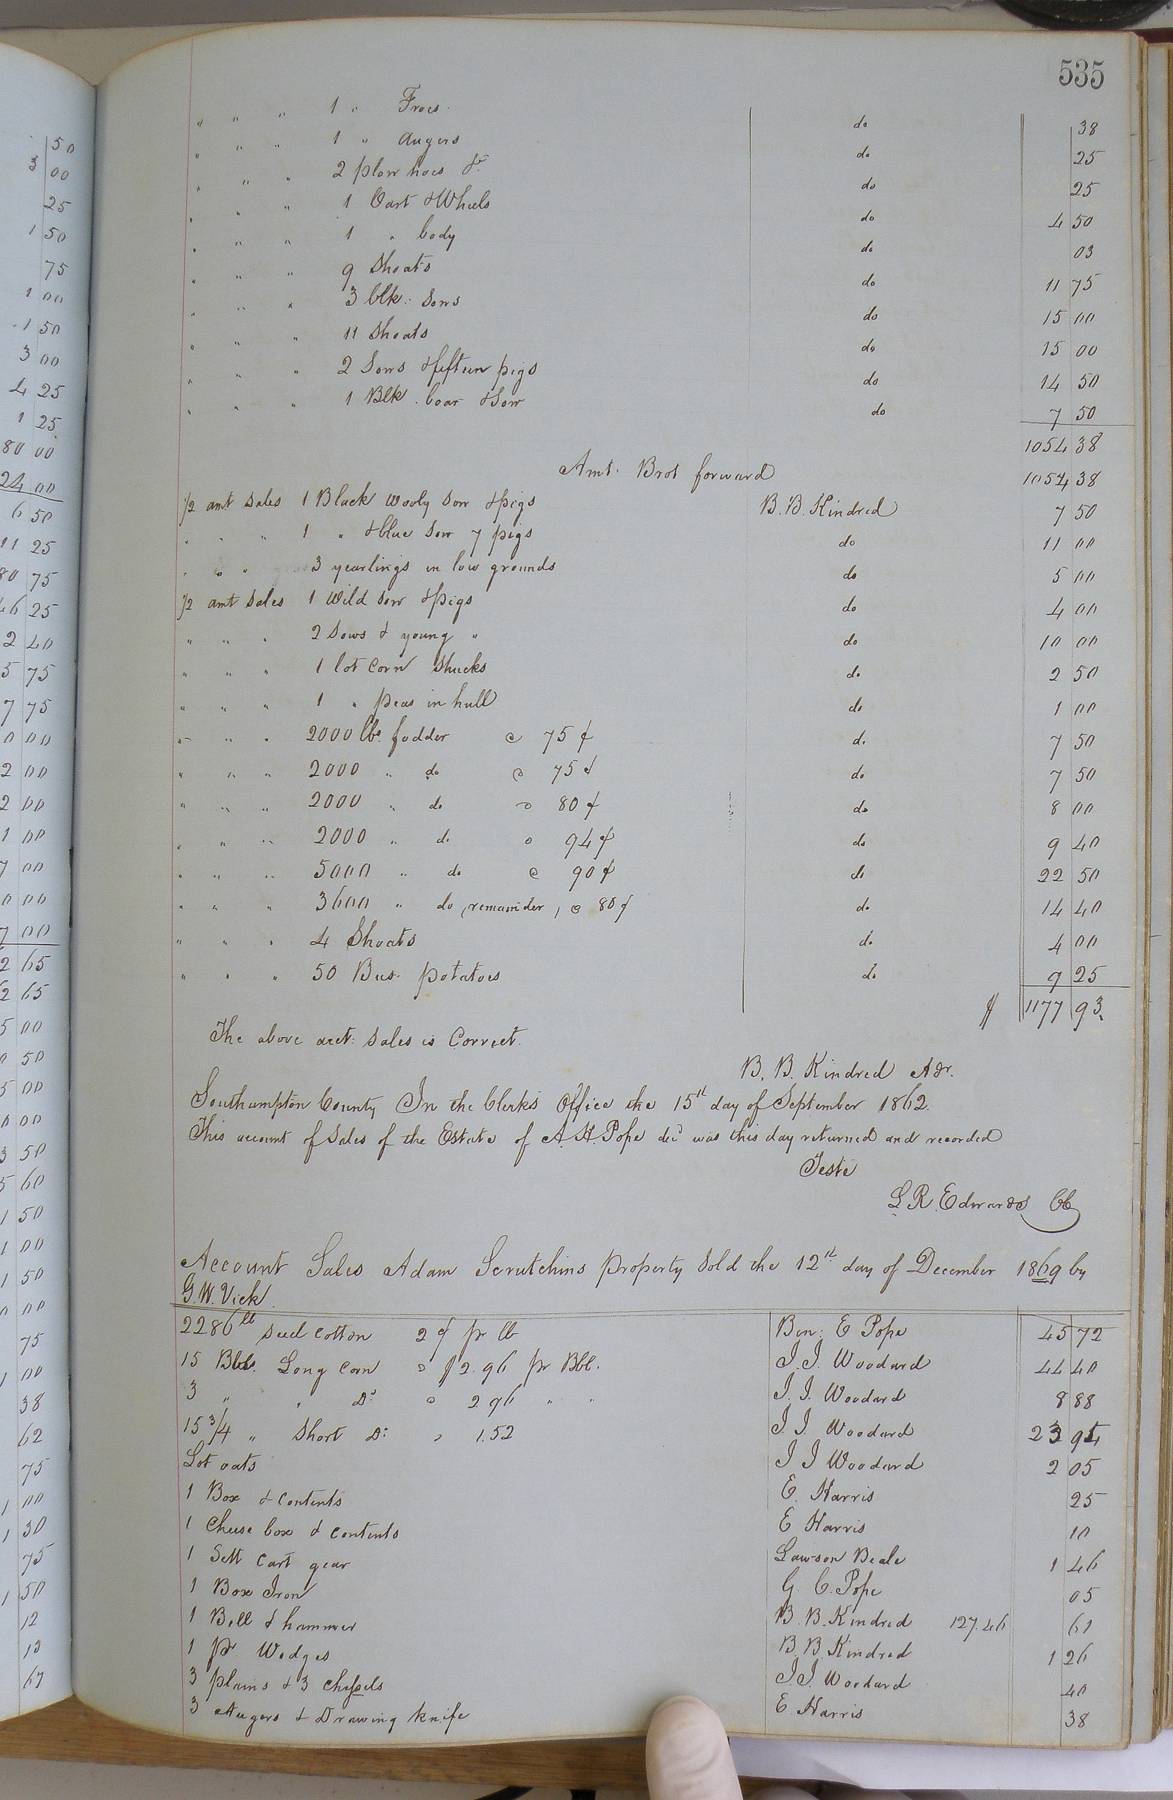 535
" " " 1 " Froes do 38
" " " 1 " Augers do 25
" " " 2 plow hoes &c do 25
" " " 1 Cart & Wheels do 4 50
" " " 1 " body do 03
" " " 9 Shoats do 11 75
" " " 3 blk. Sows do 15 00
" " " 11 Shoats do 15 00
" " " 2 Sows & fifteen pigs do 14 50
" " " 1 Blk. boar & Sow do 7 50
1054 38
Amt. Brot forward 1054 38
1/2 amt Sales 1 Black wooly Sow & pigs B. B. Kindred 7 50
" " " 1 " & blue Sow 7 pigs do 11 00
" " " 3 yearlings in low grounds do 5 00
1/2 amt Sales 1 Wild Sow & pigs do 4 00
" " " 2 Sows & young " do 10 00
" " " 1 lot Corn Shucks do 2 50
" " " 1 " peas in hull do 1 00
" " " 2000 lbs. fodder @ 75 ¢ do 7 50
" " " 2000 " do @ 75 ¢ do 7 50
" " " 2000 " do @ 80 ¢ do 8 00
" " " 2000 " do @ 94 ¢ do 9 40
" " " 5000 " do @ 90 ¢ do 22 50
" " " 3600 " do (remainder) @ 80 ¢ do 14 40
" " " 4 Shoats do 4 00
" " " 50 Bus. potatoes do 9 25
$ 1177 93
The above acct: Sales is Correct.
B. B. Kindred Adr.
Southampton County In the Clerks Office the 15th day of September 1862.
This account of Sales of the Estate of A. H. Pope decd was this day returned and recorded
Teste
L R. Edwards CC
Account Sales Adam Scrutchins Property Sold the 12th day of December 1869 by
G. W. Vick
2286 lb Seed Cotton 2 ¢ pr lb Ben: E Pope 45 72
15 Bbls. Long Corn @ $2.96 pr Bbl. J. J. Woodard 44 40
3 " " Do @ 2 96 " " J. J. Woodard 8 88
15 3/4 " Short Do: @ 1.52 J J. Woodard 23 94
Lot oats J J Woodard 2 05
1 Box & Contents E. Harris 25
1 Cheese box & Contents E Harris 10
1 Sett Cart gear Lawson Beale 1 46
1 Box Iron G. C. Pope 05
1 Bell & hammer B. B. Kindred 127.46 61
1 pr Wedges B. B. Kindred 1 26
3 plains & 3 Chissels J. J. Woodard 40
3 Augers & Drawing Knife E Harris 38
50
3 00
25
1 50
75
1 00
1 50
3 00
4 25
1 25
80 00
24 00
6 50
11 25
80 75
46 25
2 40
5 75
7 75
0 00
2 00
2 00
1 00
7 00
0 00
7 00
2 65
2 65
5 00
0 50
5 00
0 00
3 50
5 60
1 50
1 00
1 50
0 00
75
1 00
38
62
75
1 00
1 30
75
1 50
12
13
67